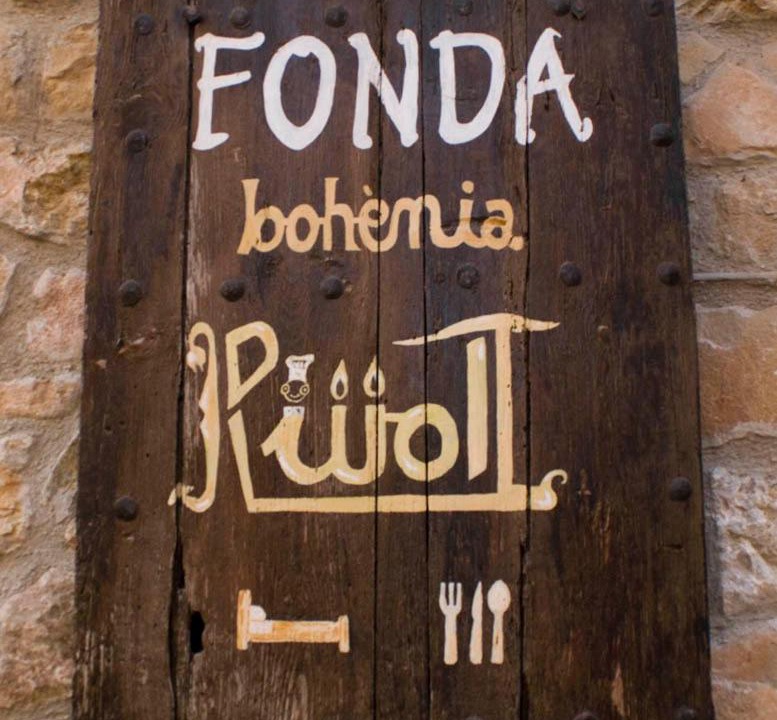 FONDA
bohènia.
Riüoll